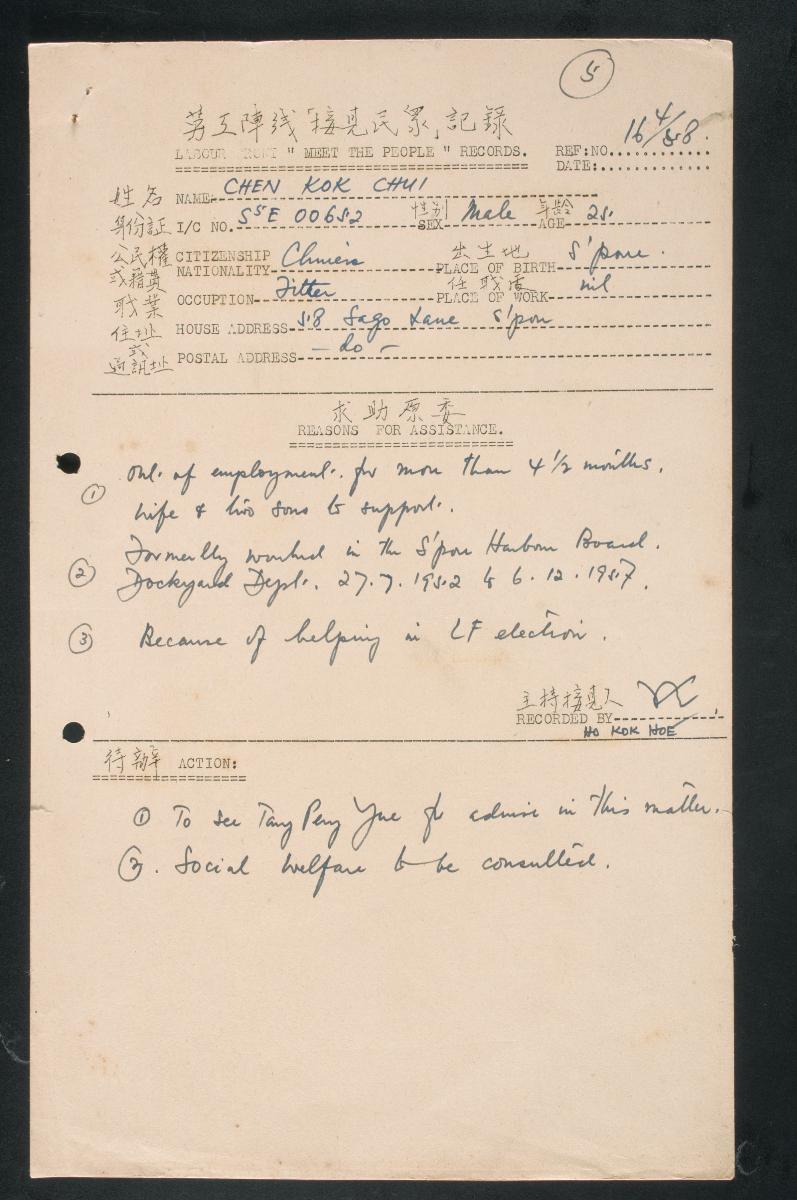 5
勞工陣线「接見民眾」記録
LABOUR FRONT " MEET THE PEOPLE " RECORDS.
REF:NO............
16/4/58.
DATE:..............
姓名 NAME CHEN KOK CHUI
身份証 I/C NO. SSE 00652 性别 SEX Male 年龄 AGE 25.
公民權 或籍貫 CITIZENSHIP NATIONALITY Chinese 出生地 PLACE OF BIRTH S'pore.
職業 OCCUPTION Fitter 任職處 PLACE OF WORK nil
住址 HOUSE ADDRESS 58 Sago Lane S'pore
或通訊址 POSTAL ADDRESS - do -
求助原委
REASONS FOR ASSISTANCE.
① Out of employment for more than 4 1/2 months.
Wife & two sons to support.
② Formerlly worked in the S'pore Harbour Board.
Dockyard Dept. 27.7.1952 to 6.12.1957.
③ Because of helping in LF election.
主持接見人
RECORDED BY
HO KOK HOE
待辦 ACTION:
① To see Tang Peng Yue for advise in this matter.
②. Social Welfare to be consulted.